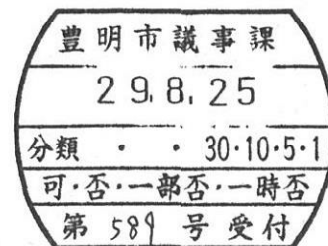 豊明市議事課
29.8.25
分類 ・ ・ 30・10・5・1
可・否・一部否・一時否
第 589 号 受付